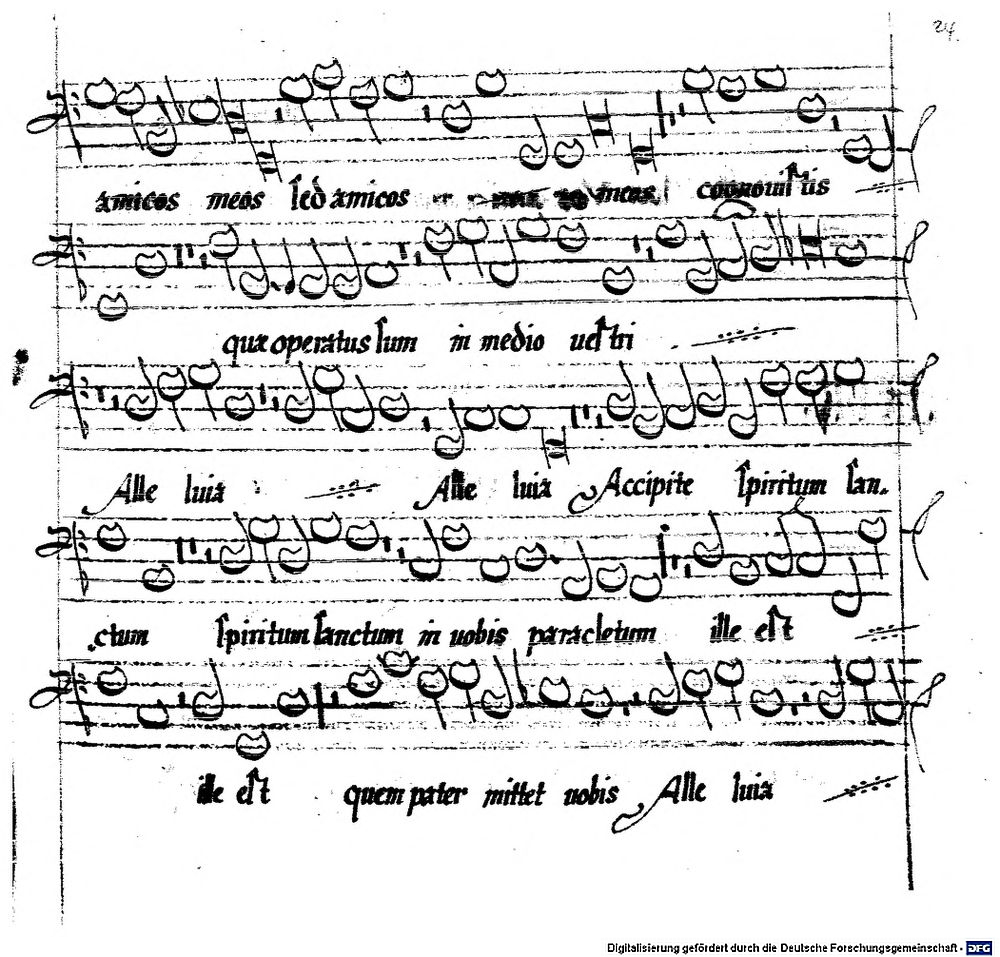 24.
amicos meos sed amicos meos cognouistis
quæ operatus sum in medio uestri
Alle luia Alle luia Accipite spiritum san-
ctum spiritum sanctum in uobis paracletum ille est
ille est quem pater mittet uobis Alle luia
Digitalisierung gefördert durch die Deutsche Forschungsgemeinschaft - DFG